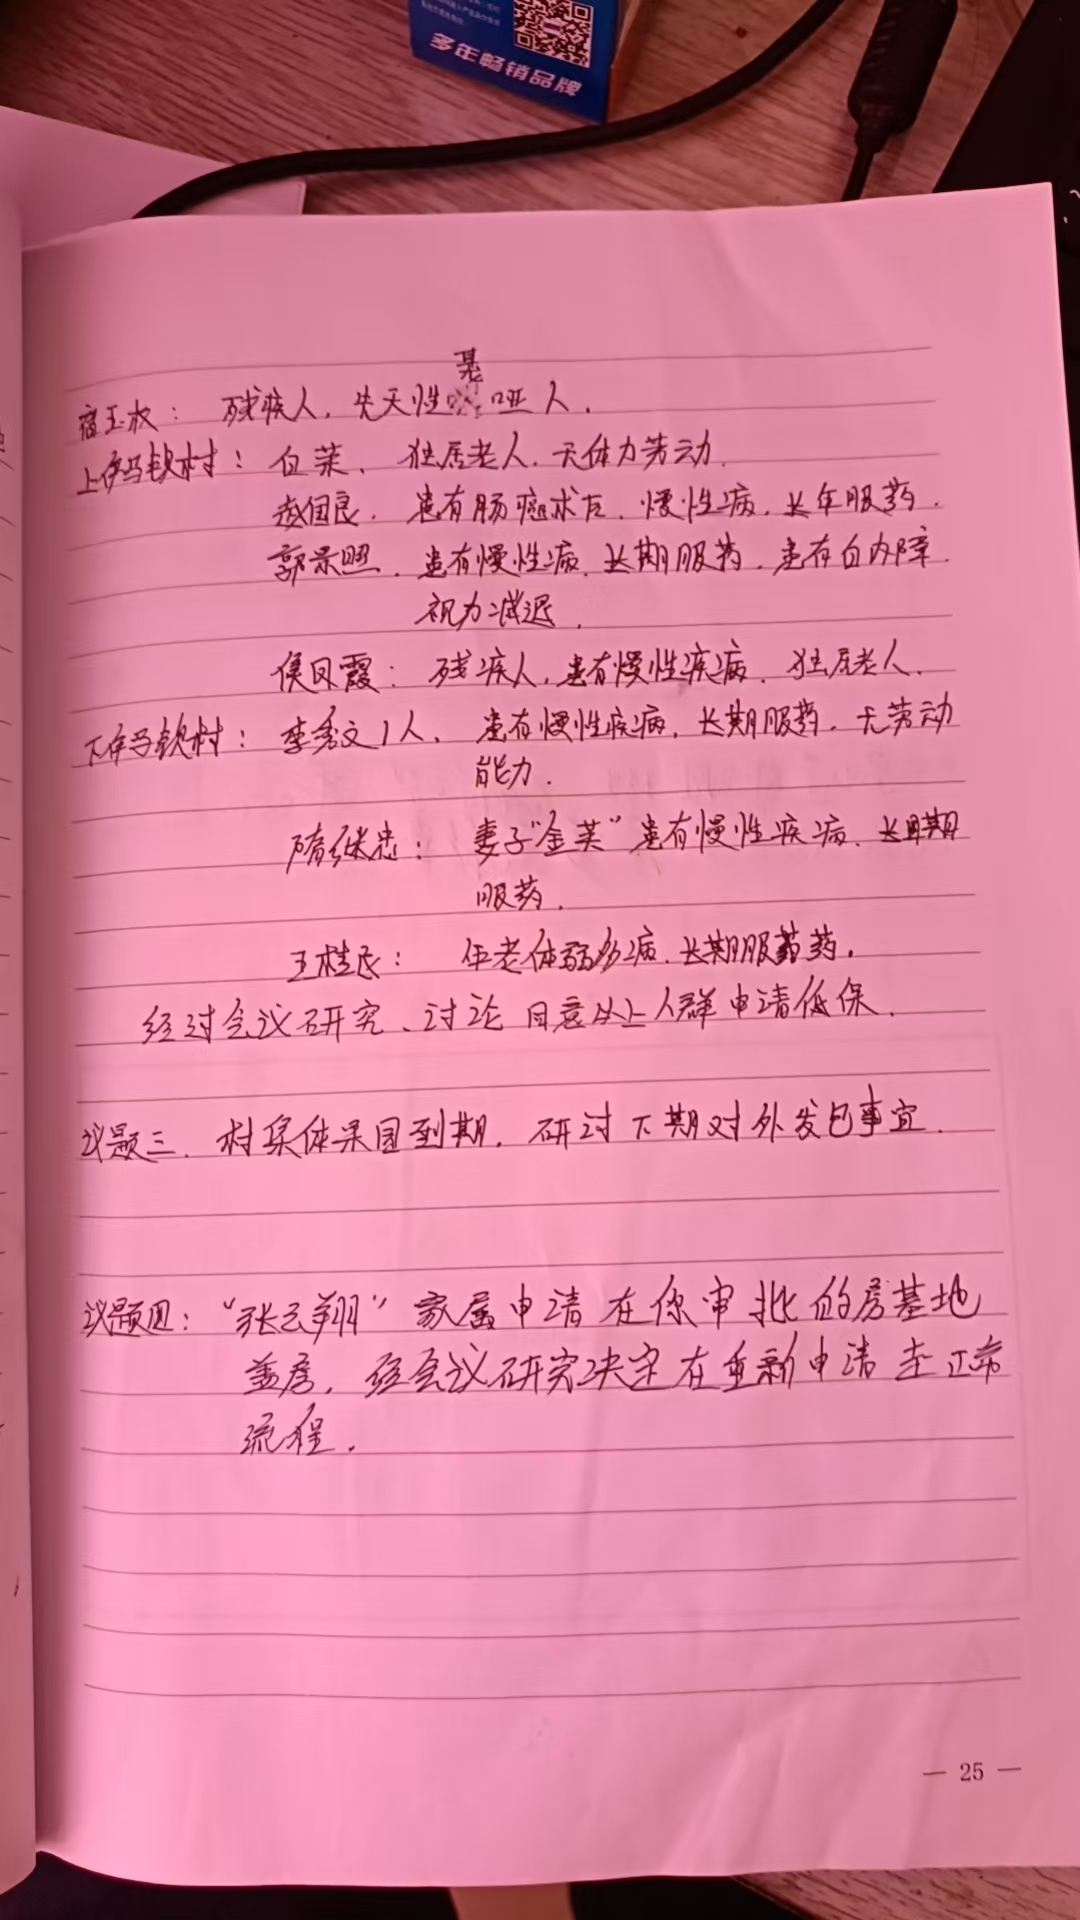 多年畅销品牌
宿玉权：残疾人，先天性聋哑人．
上伊马钦村：白荣、独居老人．无体力劳动．
赵国良．患有肠癌术后、慢性病．长年服药．
郭景照．患有慢性病．长期服药．患有白内障．
视力减退．
侯凤霞：残疾人，患有慢性疾病．独居老人．
下伊马钦村：李秀文1人、患有慢性疾病，长期服药．无劳动
能力．
隋继忠：妻子"金芙"患有慢性疾病、长期
服药．
王桂民：年老体弱多病．长期服药．
经过会议研究、讨论 同意以上人群申请低保．
议题三．村集体果园到期．研讨下期对外发包事宜．
议题四："张云翔"家属申请在你审批的房基地
盖房．经会议研究决定在重新申请走正常
流程．
— 25 —